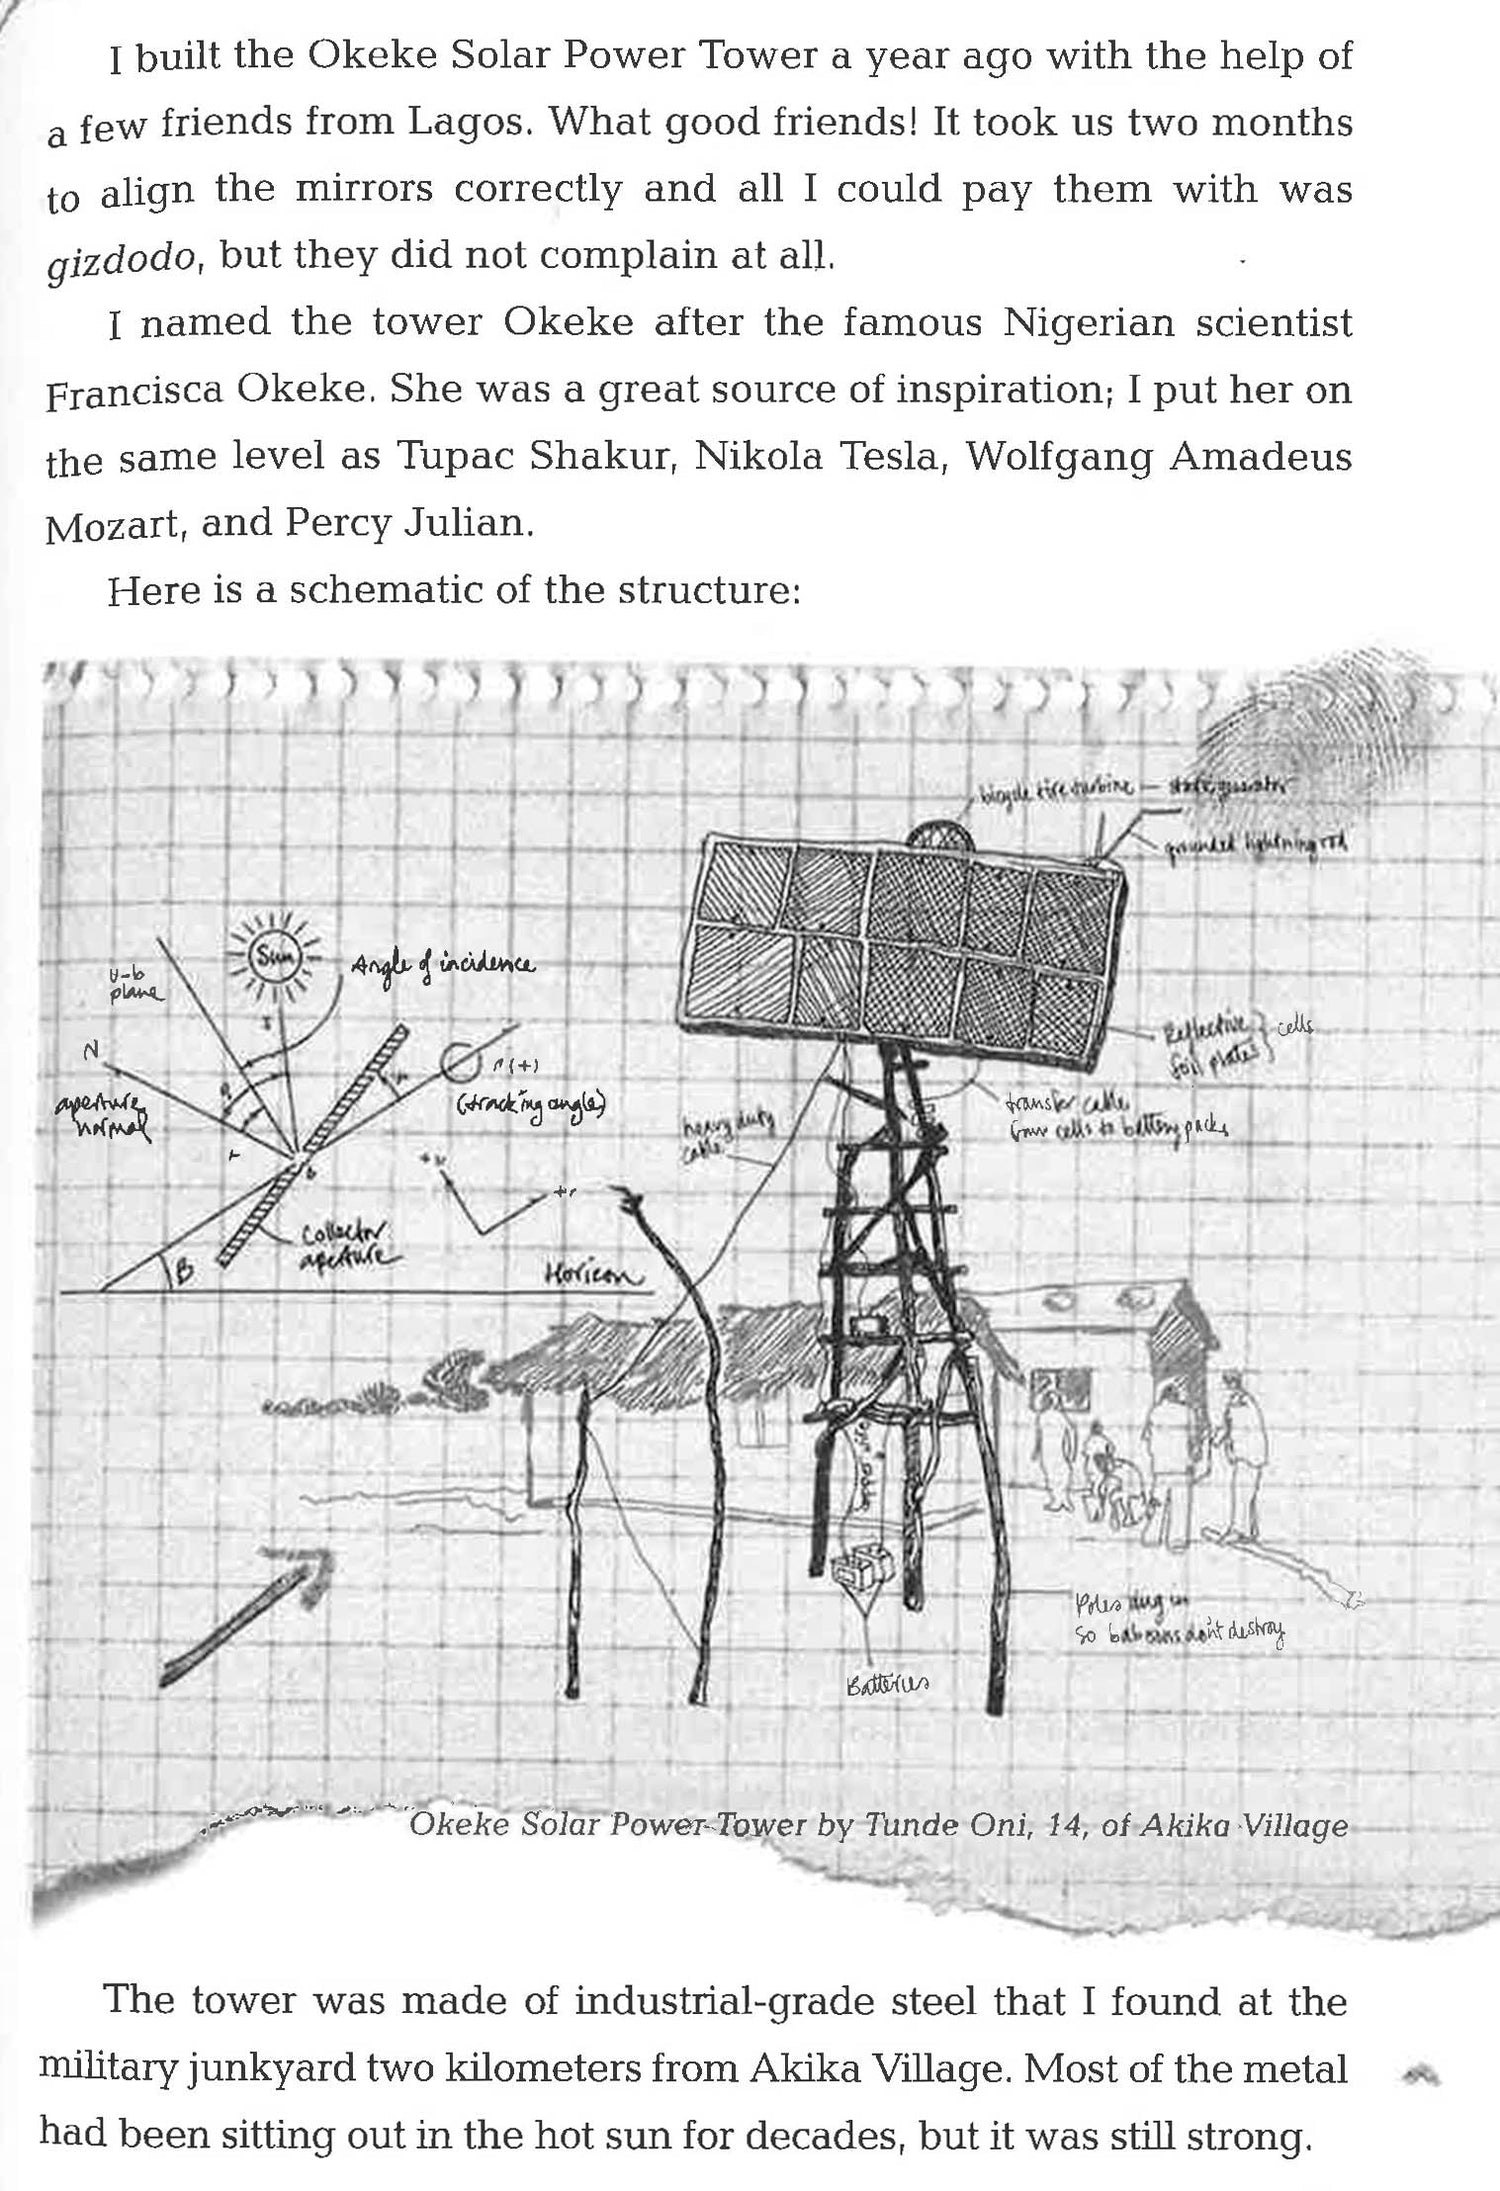 I built the Okeke Solar Power Tower a year ago with the help of
a few friends from Lagos. What good friends! It took us two months
to align the mirrors correctly and all I could pay them with was
gizdodo, but they did not complain at all.
I named the tower Okeke after the famous Nigerian scientist
Francisca Okeke. She was a great source of inspiration; I put her on
the same level as Tupac Shakur, Nikola Tesla, Wolfgang Amadeus
Mozart, and Percy Julian.
Here is a schematic of the structure:
bicycle tire turbine —
grounded lightning rod
Sun
Angle of incidence
u-b
plane
N
aperture
normal
r(+)
(tracking angle)
Reflective
foil plates
cells
transfer cable
from cells to battery packs
heavy duty
cable
+r
Collector
aperture
B
Horizon
Poles dug in
so baboons don't destroy
Batteries
Okeke Solar Power Tower by Tunde Oni, 14, of Akika Village
The tower was made of industrial-grade steel that I found at the
military junkyard two kilometers from Akika Village. Most of the metal
had been sitting out in the hot sun for decades, but it was still strong.